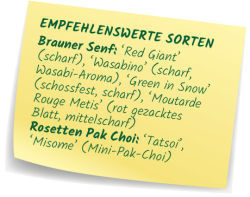 EMPFEHLENSWERTE SORTEN
Brauner Senf: ‘Red Giant’
(scharf), ‘Wasabino’ (scharf,
Wasabi-Aroma), ‘Green in Snow’
(schossfest, scharf), ‘Moutarde
Rouge Metis’ (rot gezacktes
Blatt, mittelscharf)
Rosetten Pak Choi: ‘Tatsoi’,
‘Misome’ (Mini-Pak-Choi)